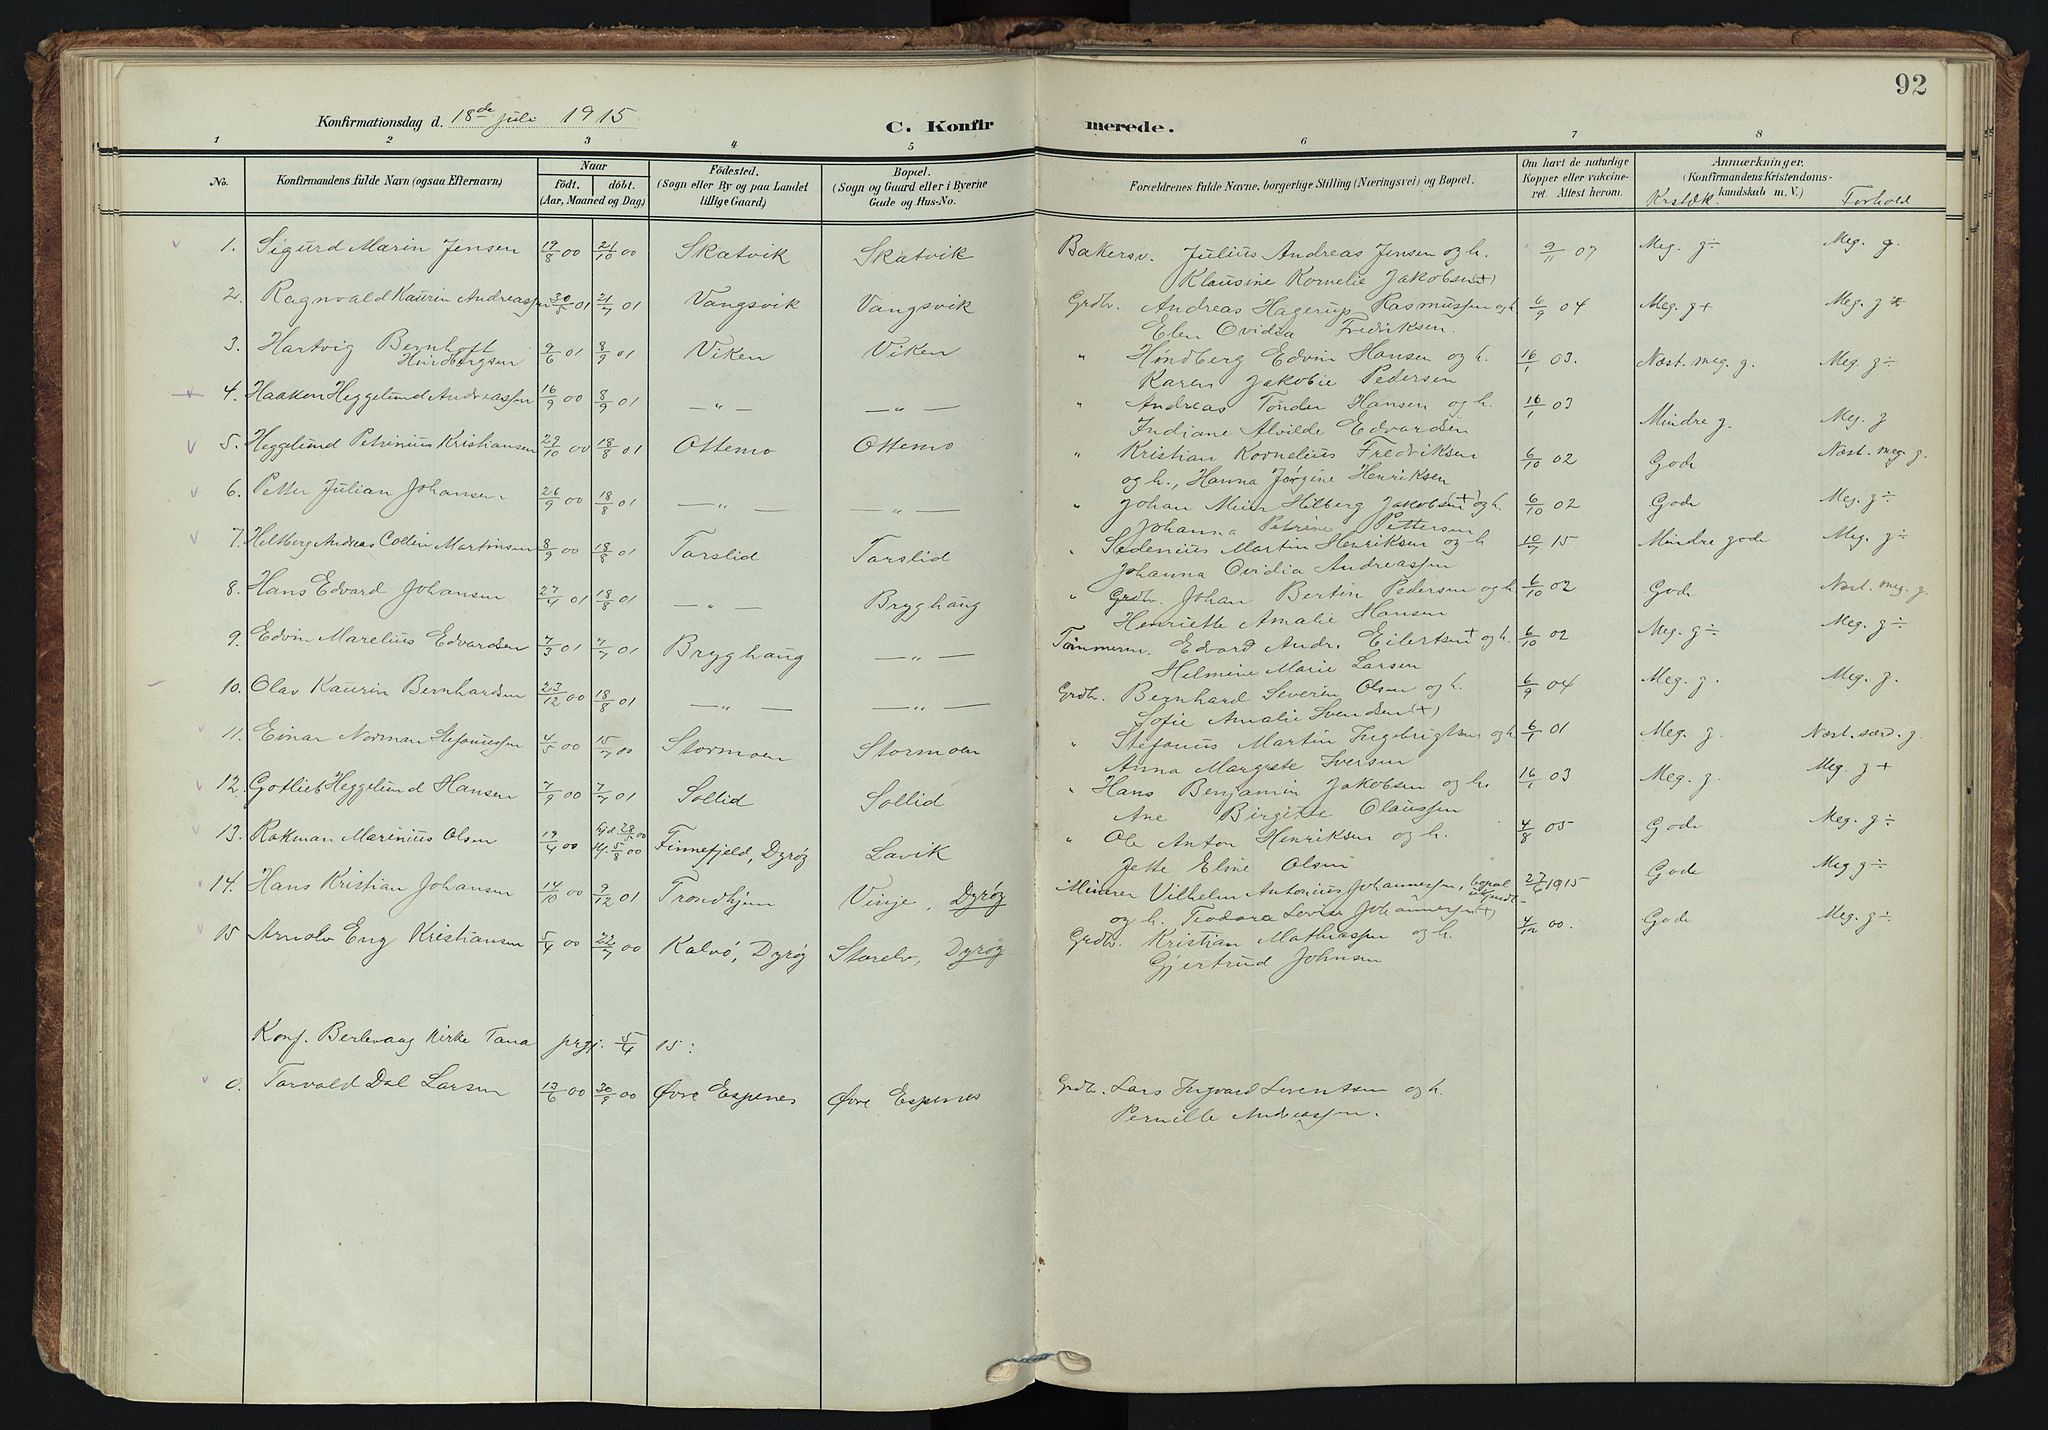 92
Konfirmationsdag d. 18de juli 1915 C. Konfirmerede.
1 2 3 4 5 6 7 8
No. Konfirmandens fulde Navn (ogsaa Efternavn) Naar födt. döbt. (Aar, Maaned og Dag) Födested. (Sogn eller By og paa Landet tillige Gaard) Bopæl. (Sogn og Gaard eller i Byerne Gade og Hus-No. Forældrenes fulde Navne, borgerlige Stilling (Næringsvei) og Bopæl. Om havt de naturlige Kopper eller vakcineret. Attest herom. Anmærkninger. (Konfirmandens Kristendomskundskab m. V.) Krstdk. Forhold
1. Sigurd Marin Jensen 19/8 00 21/10 00 Skatvik Skatvik Bakersv. Julius Andreas Jensen og h. 9/11 07 Meg. g÷ Meg. g.
Klausine Kornelie Jakobsen (+)
2. Ragnvald Kaurin Andreassen 30/5 01 21/7 01 Vangsvik Vangsvik Grdbr. Andreas Hagerup Rasmussen og h. 6/9 04 Meg. g+ Meg. g
Elen Ovidia Fredriksen.
3. Hartvig Bernhoft 9/6 01 8/9 01 Viken Viken " Hindberg Edvin Hansen og h. 16/1 03. Næst. meg. g. Meg. g÷
Hindbergsen Karen Jakobie Pedersen
4. Haakon Heggelund Andreassen 16/9 00 8/9 01 — " — — " — " Andreas Tønder Hansen og h. 16/1 03 Mindre g. Meg. g
Indiane Alvilde Edvardsen
5. Heggelund Petrinius Kristiansen 29/10 00 18/8 01 Ottemo Ottemo " Kristian Kornelius Fredriksen 6/10 02 Gode Næst. meg. g.
og h., Hanna Jørgine Henriksen
6. Petter Julian Johansen 26/9 00 18/8 01 — " — — " — " Johan Meier Hilberg Jakobsen (+) og h. 6/10 02 Gode Meg. g÷
Johanna Petrine Pettersen
7. Hilberg Andreas Collin Martinsen 8/9 00 18/8 01 Tarslid Tarslid " Sedenius Martin Henriksen og h 10/7 15 Mindre gode Meg. g÷
Johanna Ovidia Andreassen
8. Hans Edvard Johansen 27/4 01 18/8 01 — " — Bryghaug " Grdbr. Johan Bertin Pedersen og h. 6/10 02 Gode Næst. meg. g.
Henriette Amalie Hansen
9. Edvin Marelius Edvardsen 7/3 01 7/7 01 Bryghaug — " — Tømmerm. Edvard Andr. Eilertsen + og h. 6/10 02 Meg. g÷ Meg. g÷
Helmine Marie Larsen
10. Olav Kaurin Bernhardsen 23/12 00 18/8 01 — " — — " — Grdbr. Bernhard Severin Olsen og h. 6/9 04 Meg. g. Meg. g.
Sofie Amalie Svendsen (+)
11. Einar Norman Stefanussen 4/5 00 15/7 00 Stormoen Stormoen " Stefanus Martin Ingebrigtsen og h. 6/1 01 Meg. g. Næst. særd. g.
Anna Margrete Iversen
12. Gotlieb Heggelund Hansen 7/9 00 7/7 01 Sollid Sollid " Hans Benjamin Jakobsen og h. 16/1 03 Meg. g. Meg. g+
Ane Birgitte Olaussen
13. Rakman Marinius Olsen 19/4 00 hjd. 28/5 00 5/8 00 Finnefjeld, Dyrøy Lavik " Ole Anton Henriksen og h. 4/8 05 Gode Meg. g÷
Jette Eline Olsen
14. Hans Kristian Johansen 14/10 00 9/12 01 Trondhjem Vinje, Dyrøy Minerer Vilhelm Antonius Johannessen, bopæl ukjendt 27/6 1915 Gode Meg g÷
og h. Teodora Lovise Johannesen (+)
15 Arnolv Eng Kristiansen 5/4 00 22/7 00 Kalvö, Dyrøy Storelv, Dyrøy Grdbr. Kristian Mathiassen og h. 4/12 00. Gode Meg. g÷
Gjertrud Johnsen
Konf. Berlevaag Kirke Tana prgj. 5/4 15:
0. Torvald Dal Larsen 13/6 00 30/9 00 Øvre Espenes Øvre Espenes Grdbr. Lars Ingvard Lorentsen og h.
Pernille Andreassen.